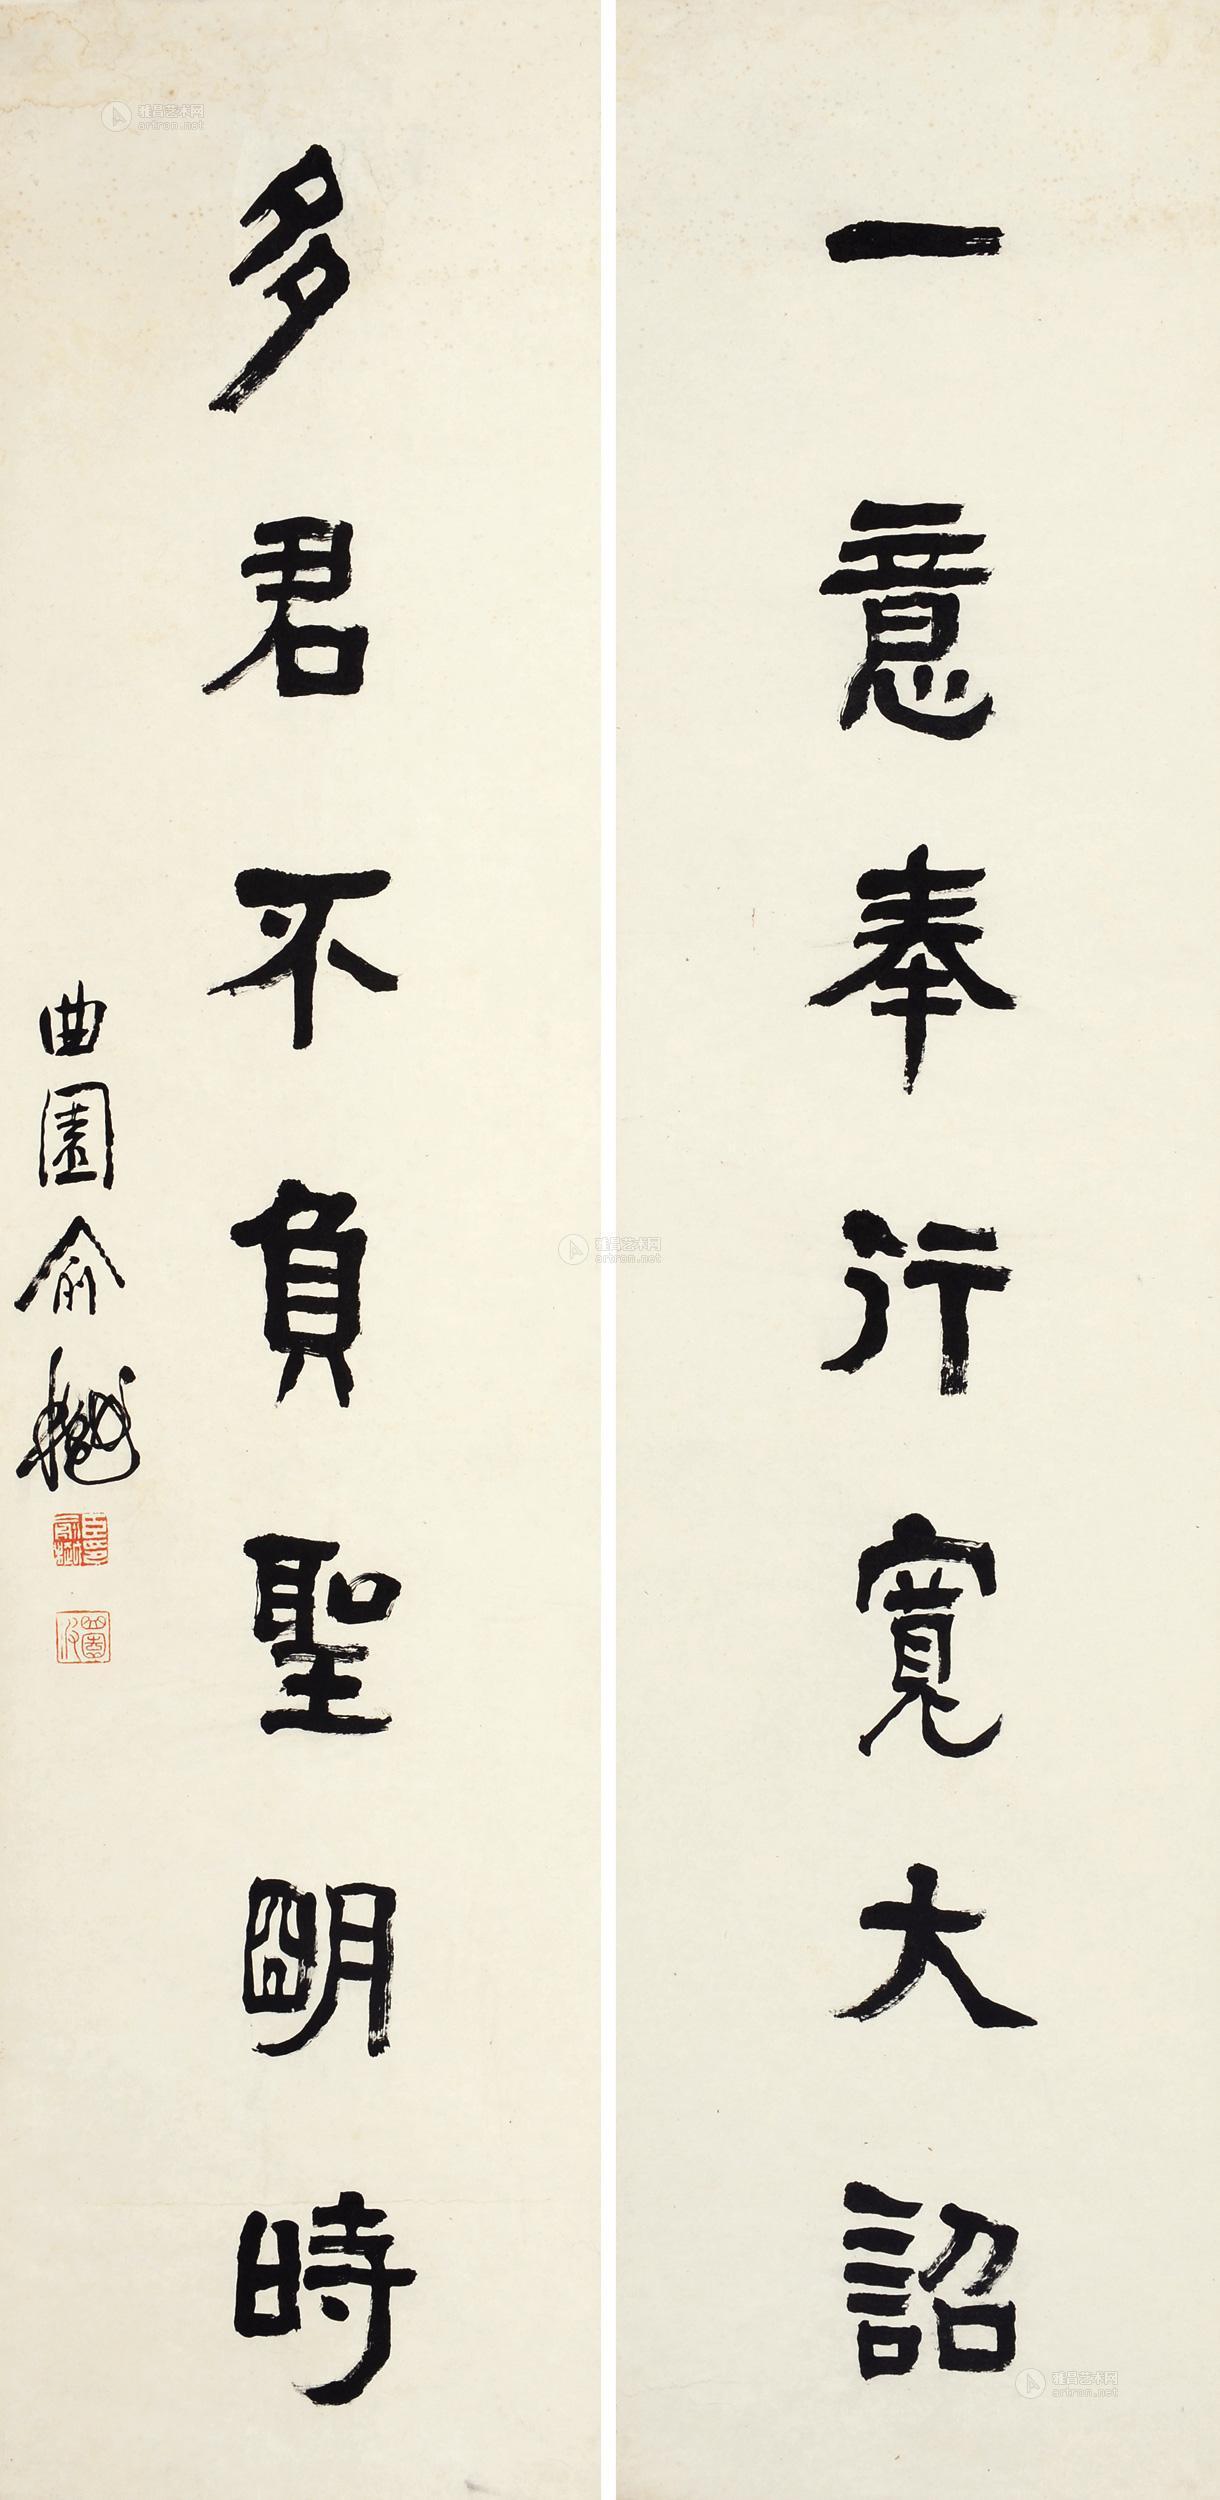 一意奉行寬大詔
多君不負聖明時
曲園俞樾
雅昌艺术网
artron.net
雅昌艺术网
artron.net
雅昌艺术网
artron.net